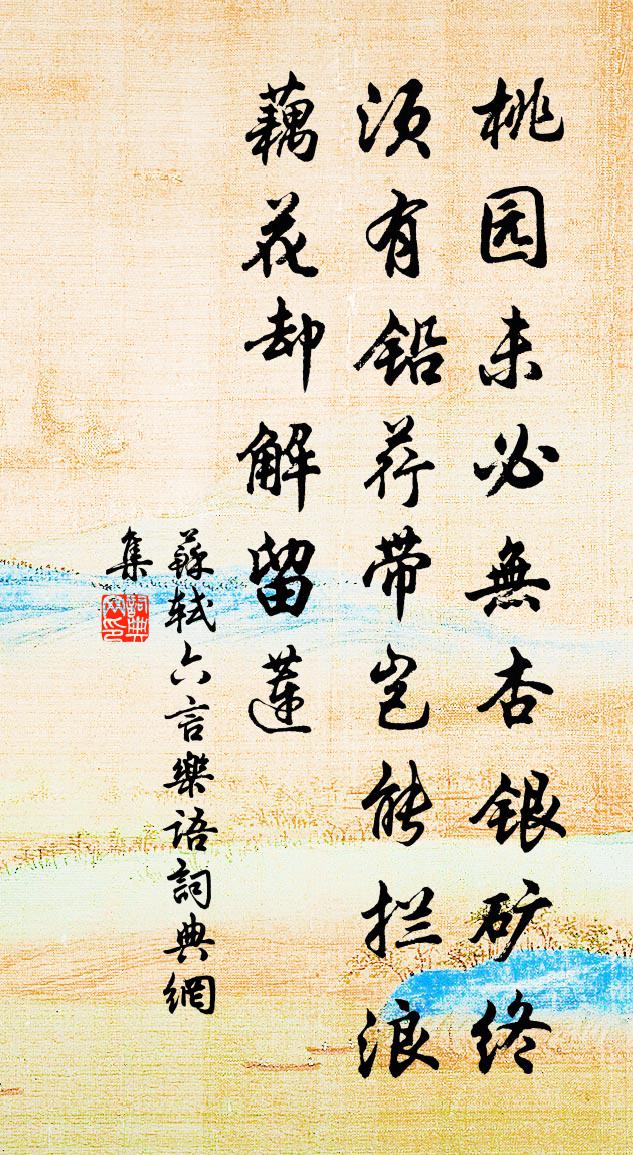 桃园未必無杏银矿终
须有铅荇带岂能拦浪
藕花却解留莲
蘇轼六言樂語詞典網
集
詞典
网印